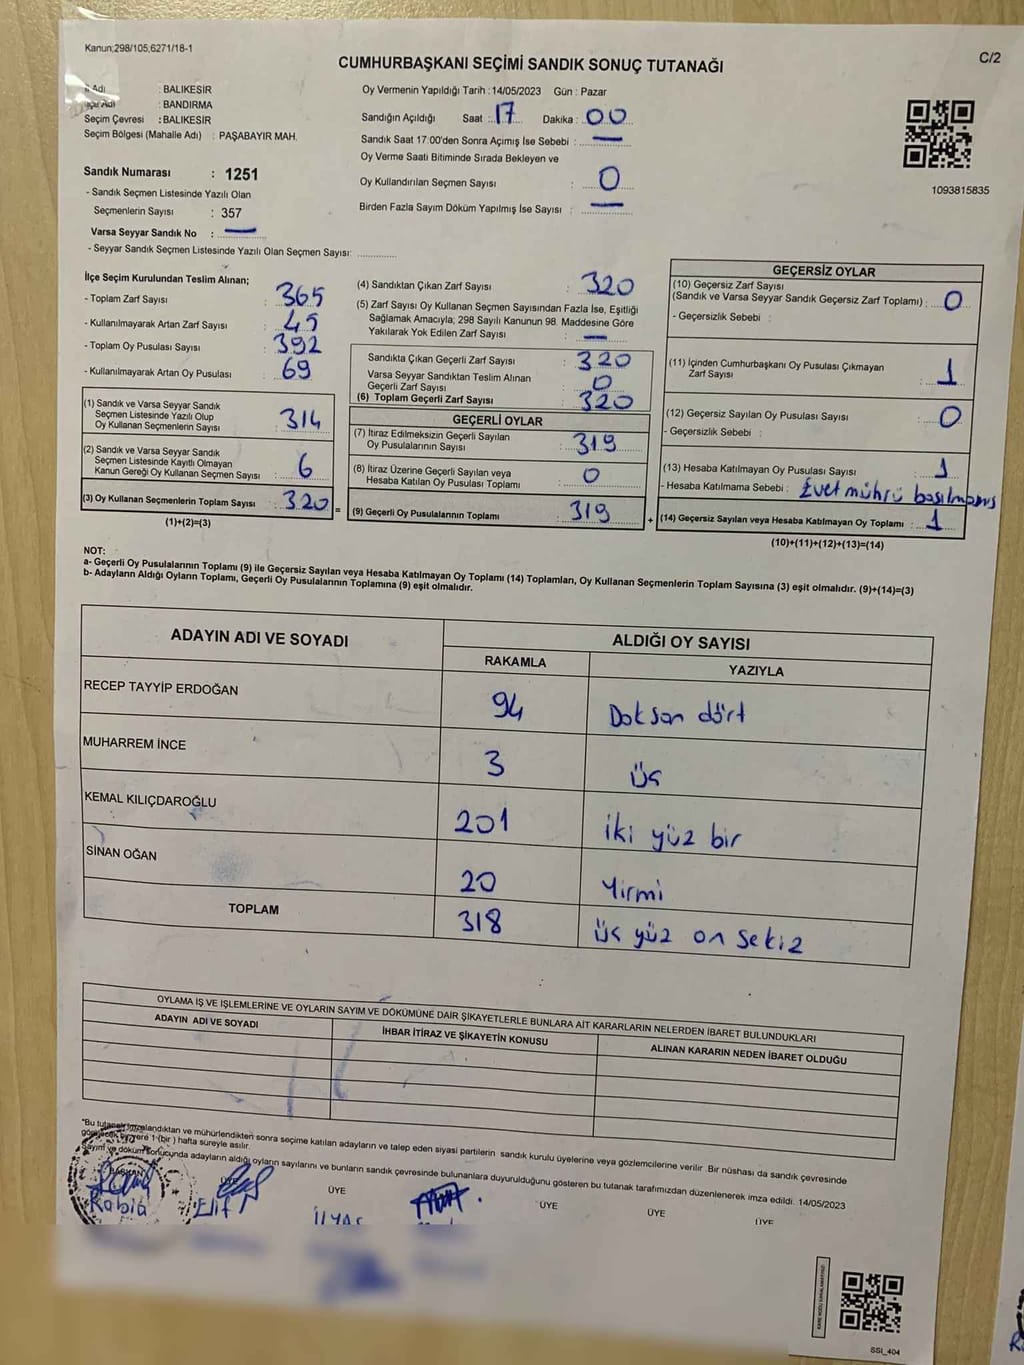 Kanun;298/105,6271/18-1
C/2
CUMHURBAŞKANI SEÇİMİ SANDIK SONUÇ TUTANAĞI
İl Adı : BALIKESİR
İlçe Adı : BANDIRMA
Seçim Çevresi : BALIKESİR
Seçim Bölgesi (Mahalle Adı) : PAŞABAYIR MAH.
Sandık Numarası : 1251
- Sandık Seçmen Listesinde Yazılı Olan
Seçmenlerin Sayısı : 357
Varsa Seyyar Sandık No : —
- Seyyar Sandık Seçmen Listesinde Yazılı Olan Seçmen Sayısı: ..............
Oy Vermenin Yapıldığı Tarih :14/05/2023 Gün : Pazar
Sandığın Açıldığı Saat : 17 Dakika : 00
Sandık Saat 17:00'den Sonra Açımış İse Sebebi : —
Oy Verme Saati Bitiminde Sırada Bekleyen ve
Oy Kullandırılan Seçmen Sayısı : 0
Birden Fazla Sayım Döküm Yapılmış İse Sayısı : —
1093815835
İlçe Seçim Kurulundan Teslim Alınan;
- Toplam Zarf Sayısı : 365
- Kullanılmayarak Artan Zarf Sayısı : 45
- Toplam Oy Pusulası Sayısı : 392
- Kullanılmayarak Artan Oy Pusulası : 69
(1) Sandık ve Varsa Seyyar Sandık
Seçmen Listesinde Yazılı Olup
Oy Kullanan Seçmenlerin Sayısı : 314
(2) Sandık ve Varsa Seyyar Sandık
Seçmen Listesinde Kayıtlı Olmayan
Kanun Gereği Oy Kullanan Seçmen Sayısı : 6
(3) Oy Kullanan Seçmenlerin Toplam Sayısı : 320 =
(1)+(2)=(3)
(4) Sandıktan Çıkan Zarf Sayısı : 320
(5) Zarf Sayısı Oy Kullanan Seçmen Sayısından Fazla İse, Eşitliği
Sağlamak Amacıyla; 298 Sayılı Kanunun 98. Maddesine Göre
Yakılarak Yok Edilen Zarf Sayısı : —
Sandıkta Çıkan Geçerli Zarf Sayısı : 320
Varsa Seyyar Sandıktan Teslim Alınan
Geçerli Zarf Sayısı : 0
(6) Toplam Geçerli Zarf Sayısı : 320
GEÇERLİ OYLAR
(7) İtiraz Edilmeksizin Geçerli Sayılan
Oy Pusulalarının Sayısı : 319
(8) İtiraz Üzerine Geçerli Sayılan veya
Hesaba Katılan Oy Pusulası Toplamı : 0
(9) Geçerli Oy Pusulalarının Toplamı : 319 +
GEÇERSİZ OYLAR
(10) Geçersiz Zarf Sayısı
(Sandık ve Varsa Seyyar Sandık Geçersiz Zarf Toplamı) : 0
- Geçersizlik Sebebi :
(11) İçinden Cumhurbaşkanı Oy Pusulası Çıkmayan
Zarf Sayısı : 1
(12) Geçersiz Sayılan Oy Pusulası Sayısı : 0
- Geçersizlik Sebebi :
(13) Hesaba Katılmayan Oy Pusulası Sayısı : 1
- Hesaba Katılmama Sebebi : Evet mührü basılmamış
(14) Geçersiz Sayılan veya Hesaba Katılmayan Oy Toplamı : 1
(10)+(11)+(12)+(13)=(14)
NOT:
a- Geçerli Oy Pusulalarının Toplamı (9) ile Geçersiz Sayılan veya Hesaba Katılmayan Oy Toplamı (14) Toplamları, Oy Kullanan Seçmenlerin Toplam Sayısına (3) eşit olmalıdır. (9)+(14)=(3)
b- Adayların Aldığı Oyların Toplamı, Geçerli Oy Pusulalarının Toplamına (9) eşit olmalıdır.
ADAYIN ADI VE SOYADI
ALDIĞI OY SAYISI
RAKAMLA YAZIYLA
RECEP TAYYİP ERDOĞAN 94 Doksan dört
MUHARREM İNCE 3 üç
KEMAL KILIÇDAROĞLU 201 iki yüz bir
SİNAN OĞAN 20 Yirmi
TOPLAM 318 üç yüz on sekiz
OYLAMA İŞ VE İŞLEMLERİNE VE OYLARIN SAYIM VE DÖKÜMÜNE DAİR ŞİKAYETLERLE BUNLARA AİT KARARLARIN NELERDEN İBARET BULUNDUKLARI
ADAYIN ADI VE SOYADI İHBAR İTİRAZ VE ŞİKAYETİN KONUSU ALINAN KARARIN NEDEN İBARET OLDUĞU
"Bu tutanak imzalandıktan ve mühürlendikten sonra seçime katılan adayların ve talep eden siyasi partilerin sandık kurulu üyelerine veya gözlemcilerine verilir .Bir nüshası da sandık çevresinde
görülecek bir yere 1 (bir ) hafta süreyle asılır.
Sayım ve döküm sonucunda adayların aldığı oyların sayılarını ve bunların sandık çevresinde bulunanlara duyurulduğunu gösteren bu tutanak tarafımızdan düzenlenerek imza edildi. 14/05/2023
BAŞKAN ÜYE ÜYE ÜYE ÜYE ÜYE
Rabia Elif İlyas
SSI_404